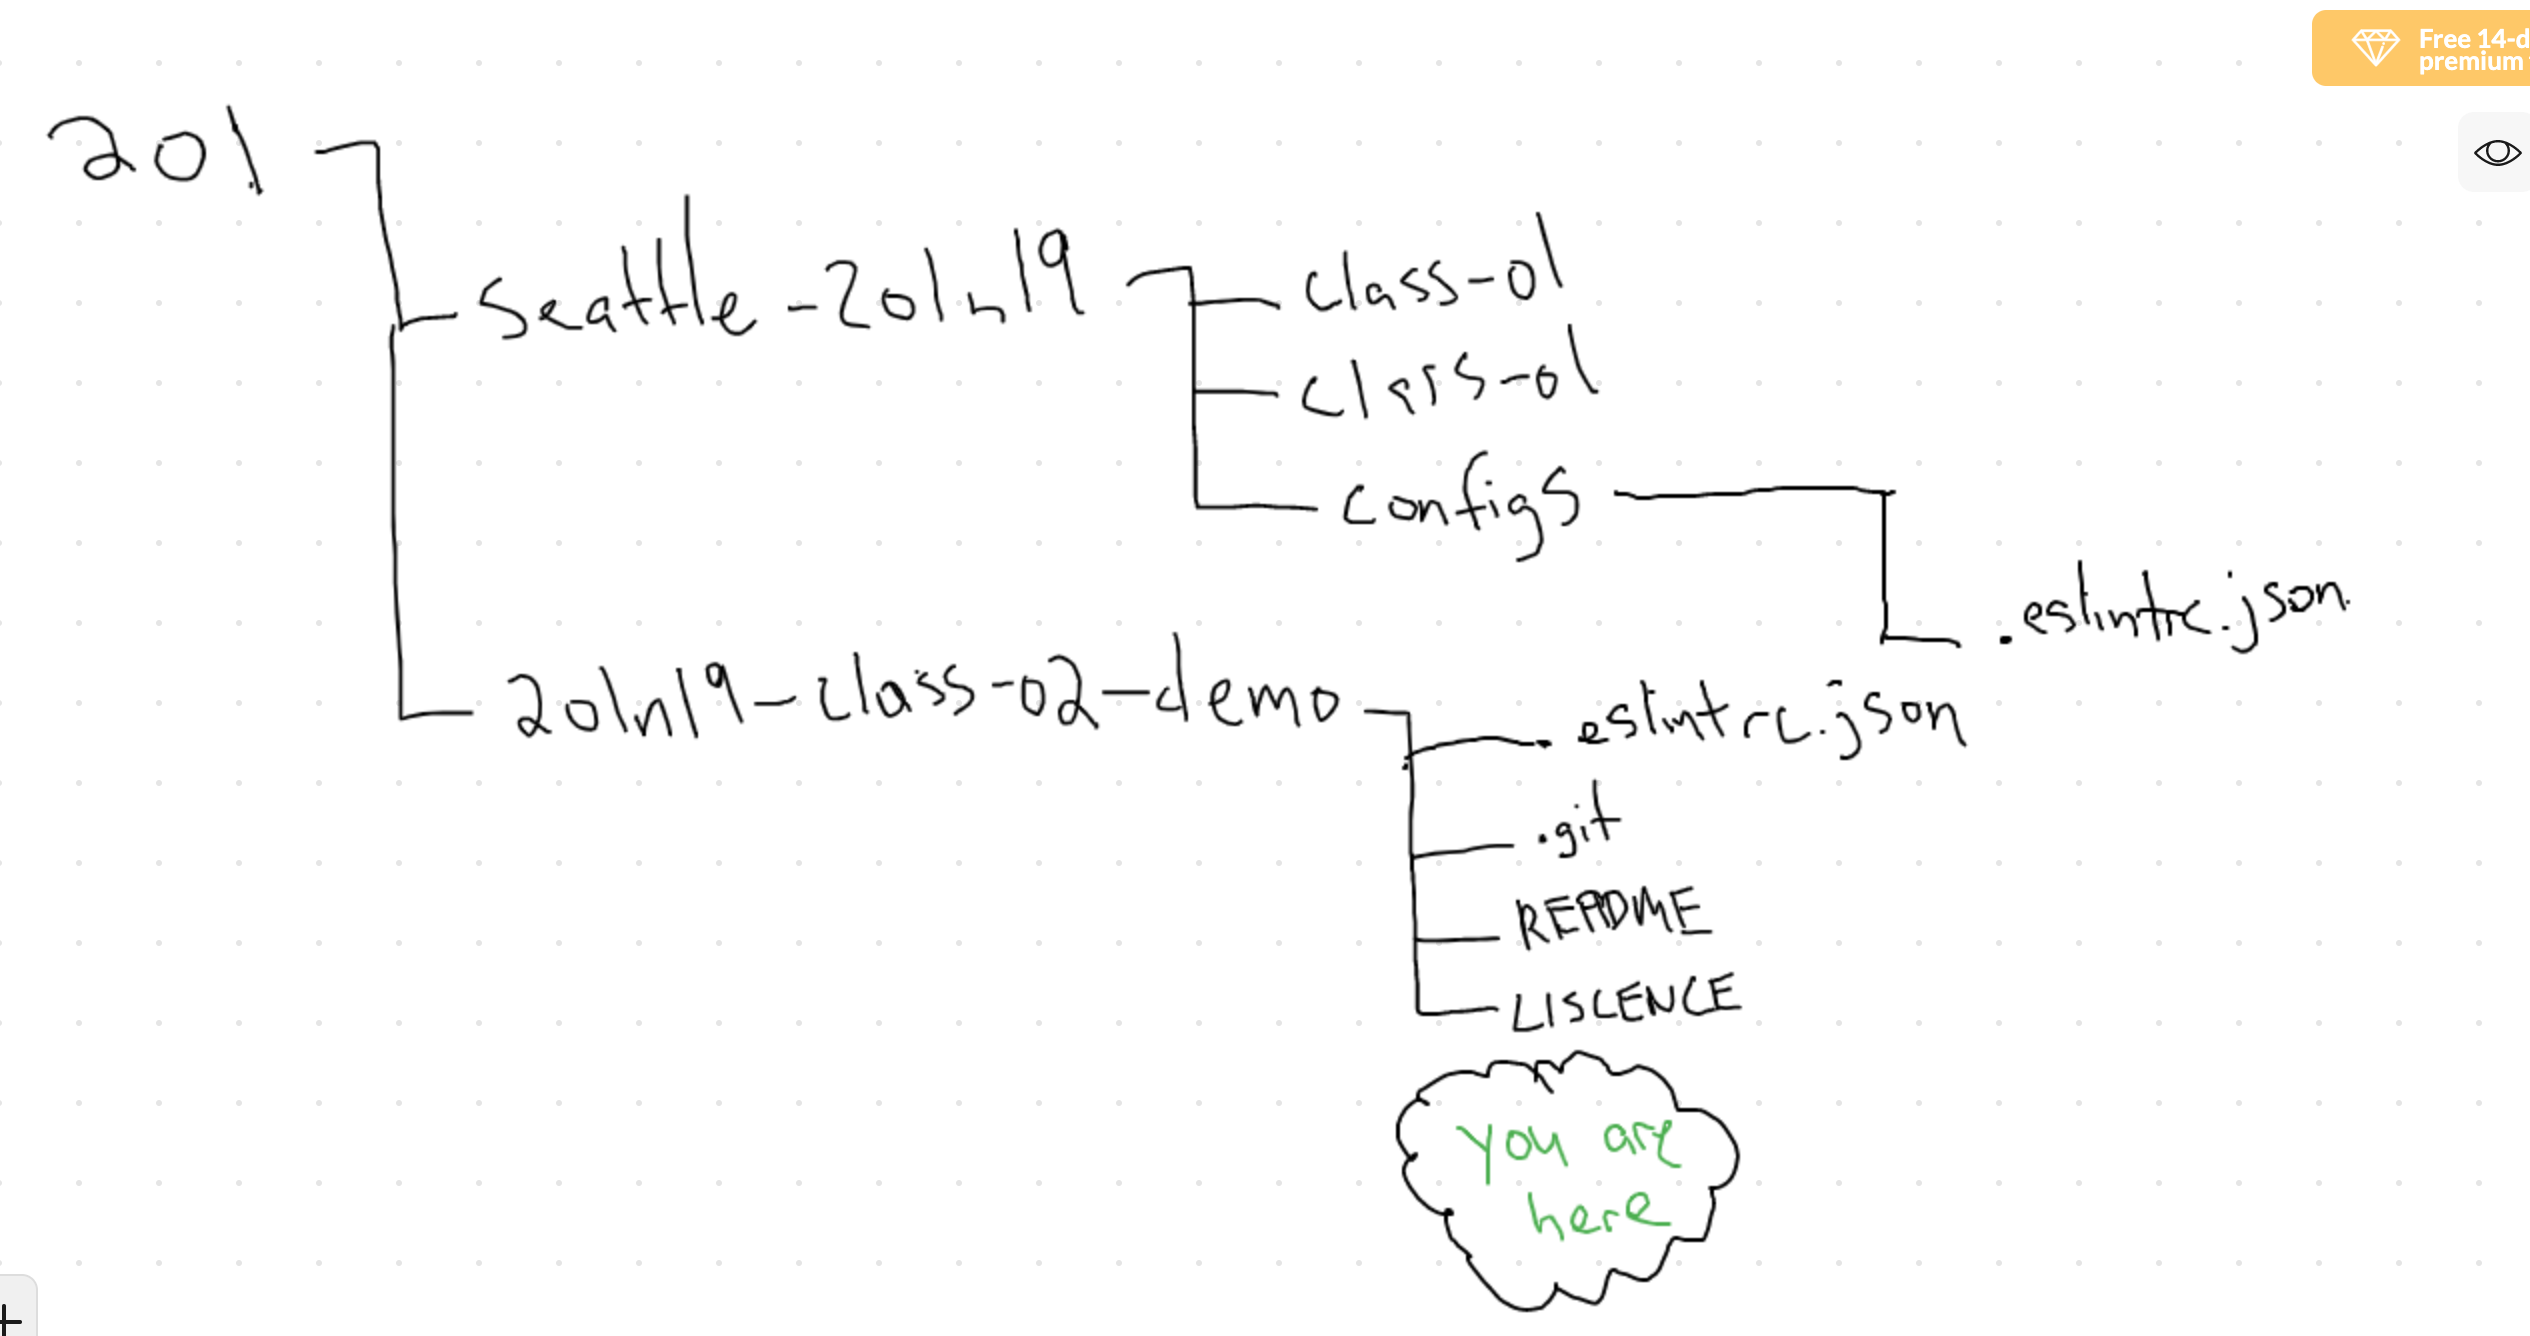 Free 14-d
premium
201
Seattle-201n19
class-01
class-01
configs
.eslintrc.json
201n19-class-02-demo
.eslintrc.json
.git
README
LISCENCE
you are
here